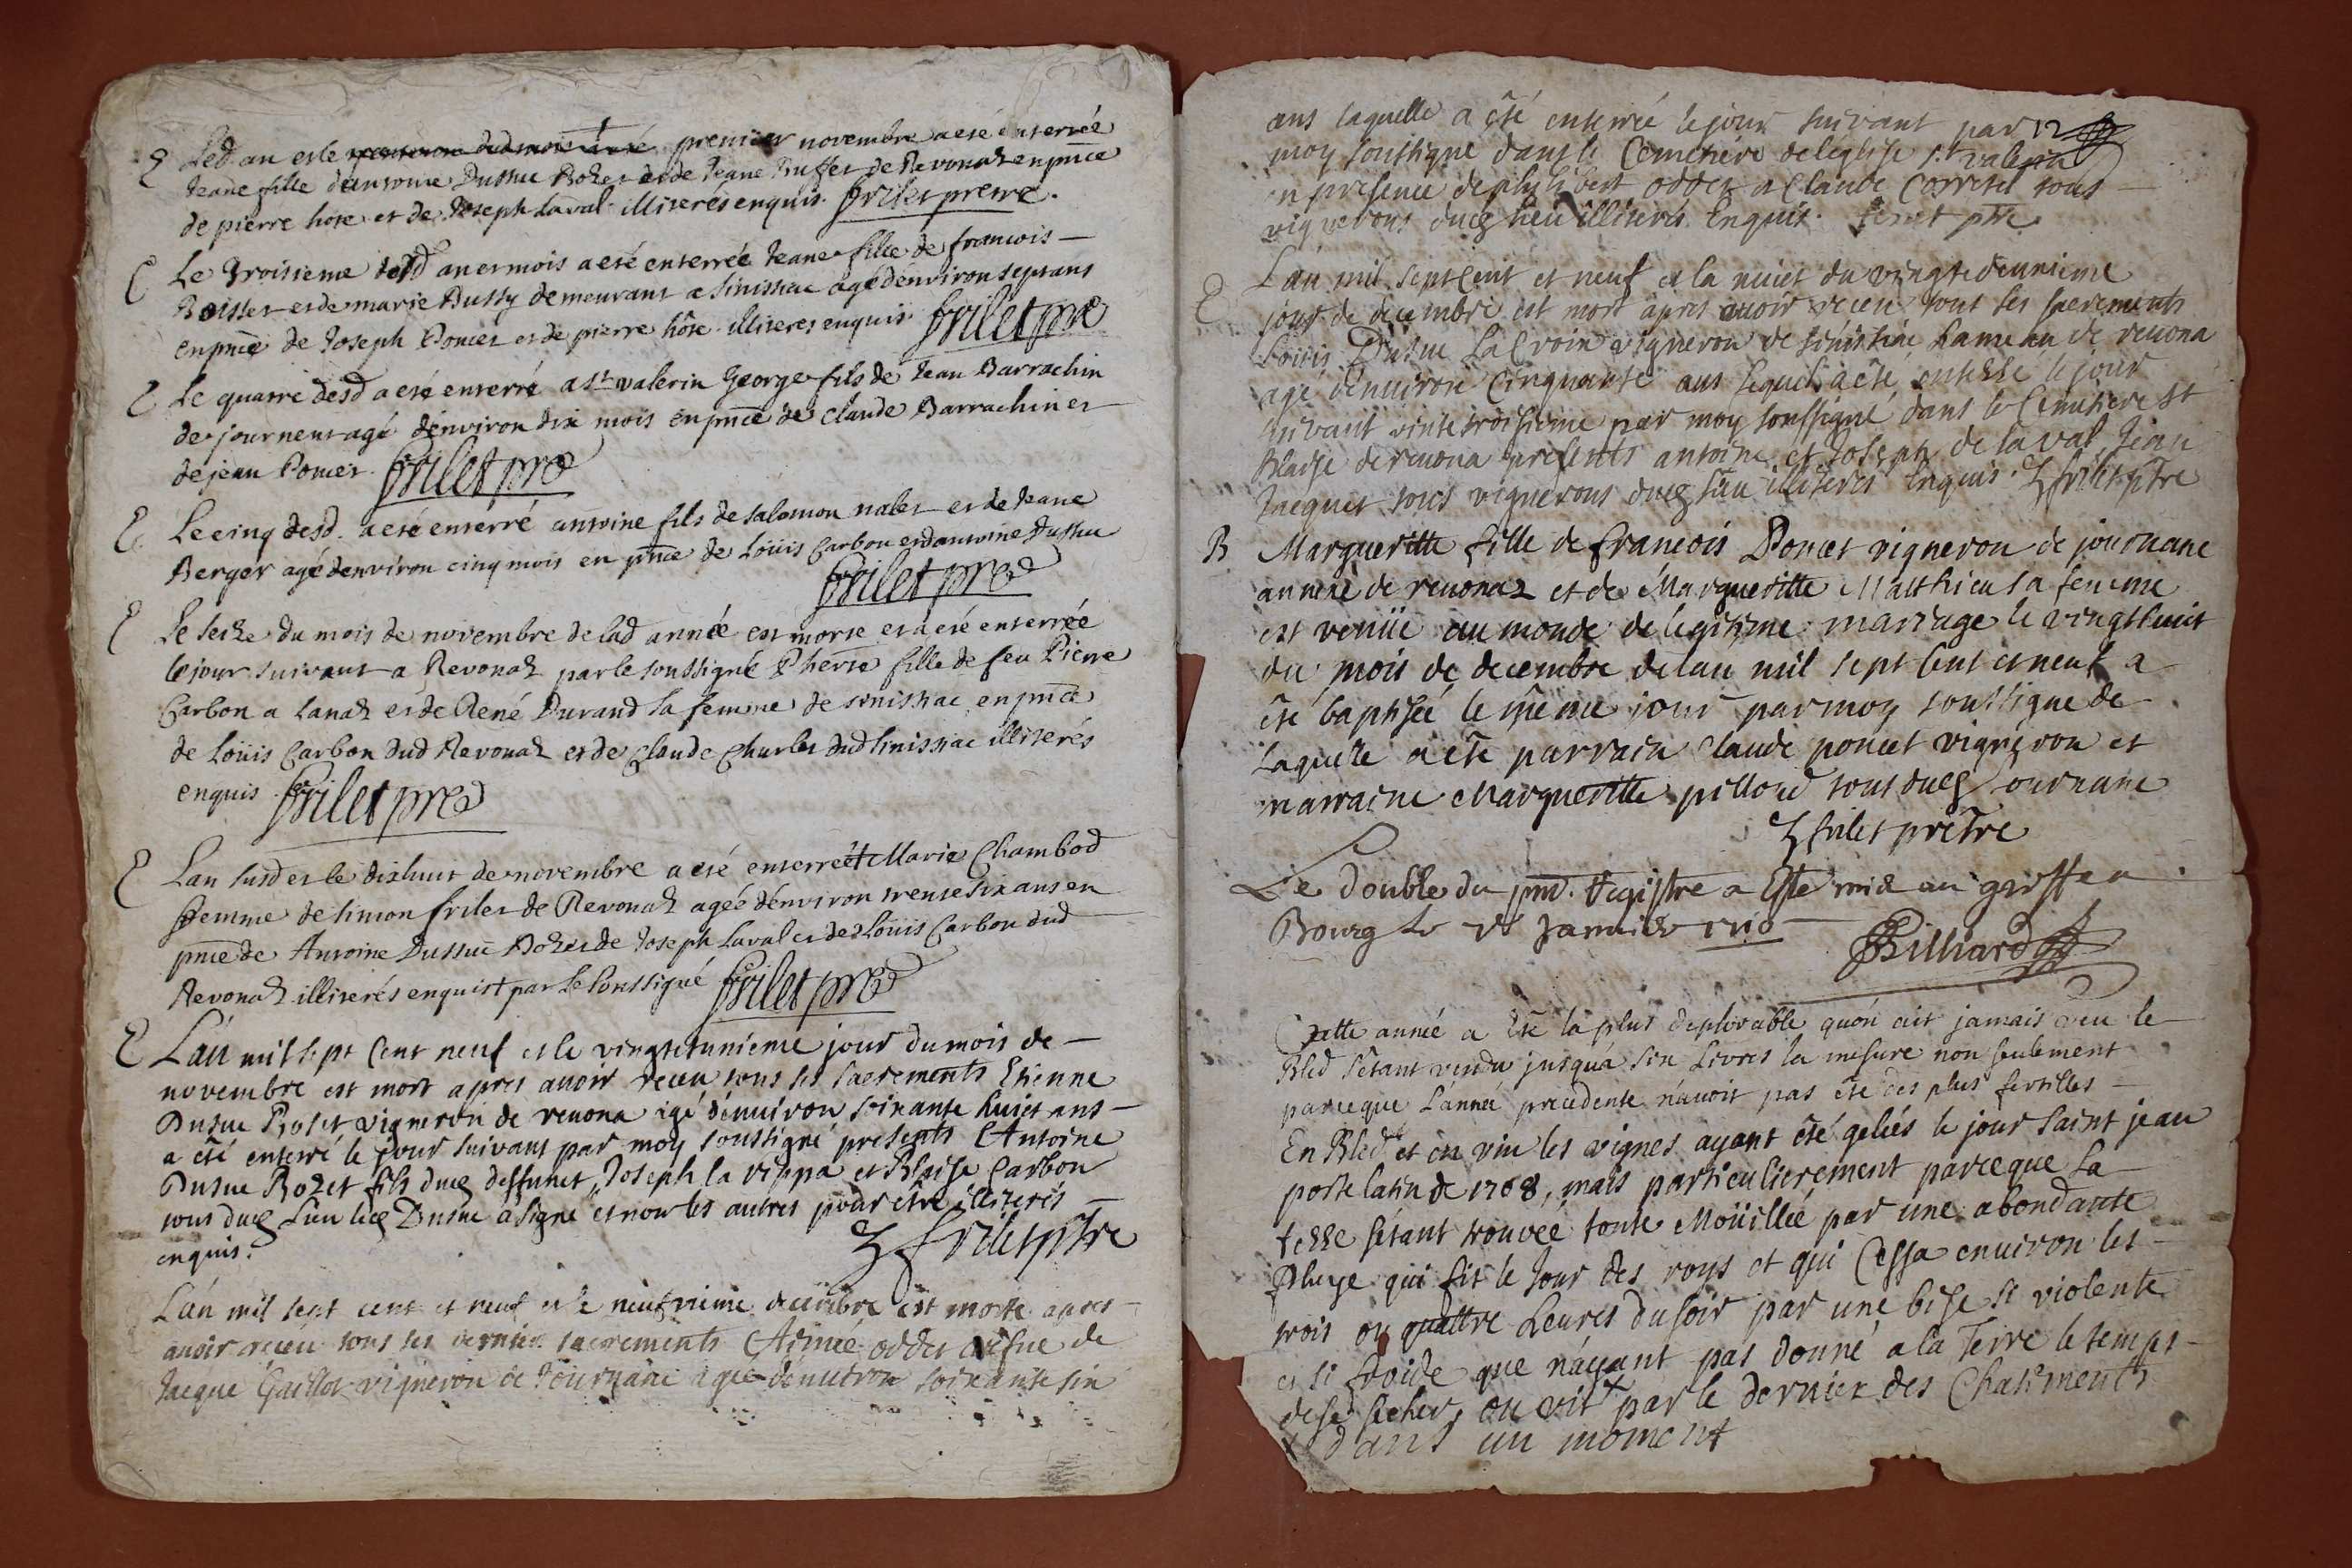 E Led. an et le premier novembre a eté enterrée
Jeane fille d'antoine Dussuc Rozet et de Jeane Buffet de Revonaz en pñce
de pierre hôte et de Joseph Laval illiterés enquis. frilet pretre.
E Le Troisieme desd an et mois a eté enterrée Jeane fille de francois
Boisset et de marie Bussy demeurant a Sinissiac agé d'environ sept ans
en pñce de Joseph Poncet et de pierre hôte illiteres enquis frilet pre
E Le quatre desd a eté enterré a St valerin George fils de Jean Barrachin
de journent agé d'environ dix mois en pñce de Claude Barrachin et
de jean Poncet. frilet pre
E Le cinq desd. a eté enterré antoine fils de salomon nalet et de Jeane
Berger agé d'environ cinq mois en pñce de Loüis Carbon et d'antoine Dussuc
frilet pre
E Le seize du mois de novembre de lad année est morte et a eté enterrée
le jour suivant a Revonaz par le soussigné Pherse fille de feu Pierre
Carbon a Lanaz et de René Durand sa femme de sinissiac en pñce
de Loüis Carbon dud Revonaz et de Claude Charles dud sinissiac illiterés
enquis. frilet pre
E Lan susd et le dixhuit de novembre a eté enterrée Marie Chambod
femme de simon frilet de Revonaz ageé d'environ trente six ans en
pñce de Antoine Dussuc Rozet de Joseph Laval et de Loüis Carbon dud
Revonaz illiterés enquis par Le soussigné frilet pre
E L'an mil sept Cent neuf et le vingtetunieme jour du mois de
novembre est mort apres avoir receu tous ses sacrements Etienne
Dusuc Roset vigneron de revona agé d'environ soixante huict ans
a été enterré le jour suivant par moy soussigné presents Antoine
Dusuc Rozet fils dud deffunct, Joseph la veppa et Blaise Carbon
tous dud Lieu led Dusuc a signé et non les autres pour être illiterés
enquis. frilet ptre
L'an mil sept cent et neuf et le neufvieme decembre est morte apres
avoir receu tous ses derniers sacrements Aimeé oddet vefue de
Jacque Gaillot vigneron de Journane ageé d'environ soixante six
ans laquelle a été enterrée le jour suivant par 12
moy soussigné dans le Cemetiere de léglise St valerin
en presence de philibert oddet a Claude Corretel tous
vignerons dud lieu illiterés Enquis. frilet ptre
E L'an mil sept Cent et neuf et la nuict du vingtedeuxieme
jour de decembre est mort apres avoir receu tous ses sacrements
Loüis Dusuc La Croix vigneron de sinissiac hameau de revona
agé d'environ Cinquante ans lequel a été enterré le jour
suivant vintetroisieme par moy soussigné dans le Cemetiere St
Blaise de revona presents antoine et Joseph de laval Jean
Jacquet tous vignerons dud lieu illiterés Enquis. frilet ptre
B Margueritte fille de francois Poncet vigneron de journane
annexe de revonaz et de Margueritte Matthieu sa femme
est venüe au monde de legitime mariage le vingthuit
du mois de decembre de lan mil sept Cent et neuf a
été baptisée le même jour par moy soussigné de
Laquelle a été parrain Claude poncet vigneron et
marraine Margueritte pilloud tous dud Journane
frilet prêtre
Le double du pnt. Registre a Esté mis au greffe a
Bourg le Janvier 1710
Billiard
Cette année a été la plus deplorable quon ait jamais veu le
Bled sétant vendu jusqu'a six livres la mesure non seulement
parceque L'anneé precedente n'auoit pas été des plus fertilles
En Bled et en vin les vignes ayant été geleés le jour saint jean
porte latin de 1708, mais particulierement parceque La
terre sétant trouveé toute Moüilleé par une abondante
Pluye qui fit le Jour des roys et qui Cessa enuiron les
trois ou quattre heures du soir par une bise si violente
et si froide que n'ayant pas donné a la Terre le temps
de se secher, on vit + par le dernier des Chatiments
+ dans un moment